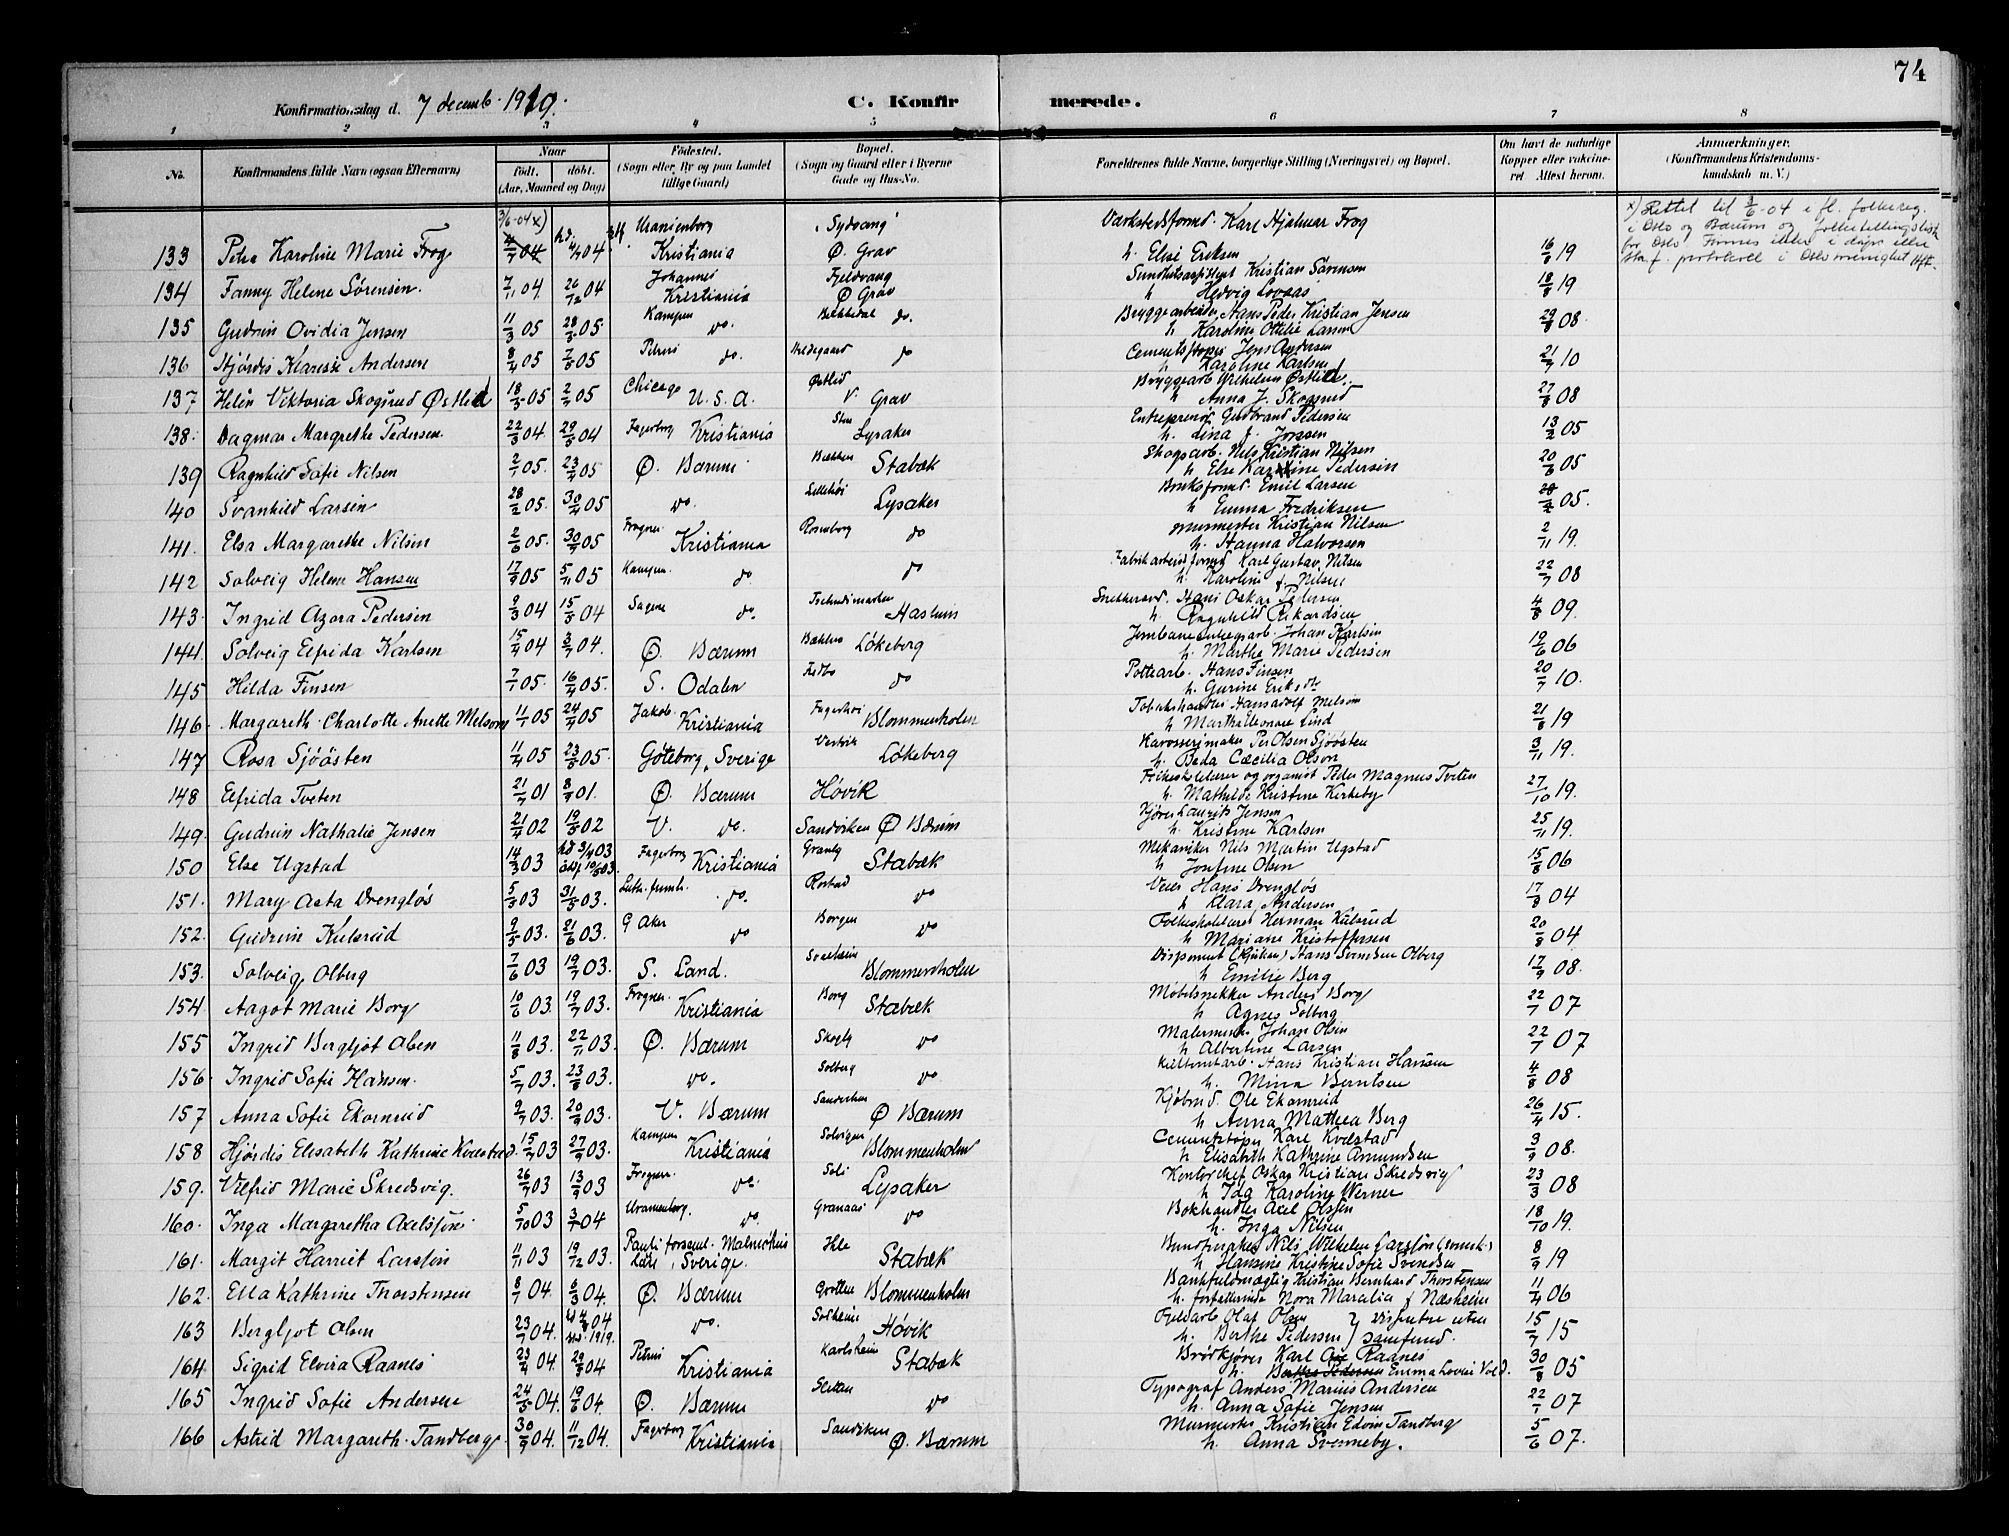 74
Konfirmationsdag d. 7 decemb. 1919.
C. Konfirmerede.
1 2 3 4 5 6 7 8
No. Konfirmandens fulde Navn (ogsaa Efternavn) Naar født. døbt. (Aar, Maaned og Dag) Fødested. (Sogn eller By og paa Landet tillige Gaard) Bopæl. (Sogn og Gaard eller i Byerne Gade og Hus-No. Forældrenes fulde Navne, borgerlige Stilling (Næringsvei) og Bopæl. Om havt de naturlige Kopper eller vaccineret Attest herom. Anmærkninger. (Konfirmandens Kristendomskundskab m. V.)
3/6-04 x)
x) Rettet til 3/6-04 efl. folkereg. i Oslo og Bærum og folketellingslist for Oslo. Finnes ikke i døpe eller
133 Petra Karoline Marie Frog 4/7 04 4/7 04 Uranienborg Kristiania Sydvang Ø. Grav Værkstedsformd. Karl Hjalmar Frog h. Elise Eriksen 16/6 19
134 Fanny Helene Sørensen. 7/11 04. 26/12 04 Johannes Kristiania Fjeldvang Ø Grav Kristian Sørensen h Hedvig Lovaas 18/8 19
135 Gudrun Ovidia Jensen 11/3 05 28/5 05. Kampen do. Bekkedal do. Bryggearbeider Hans Peder Kristian Jensen h Karoline Ottilie Larsen 29/8 08.
136 Hjørdis Klarissi Andersen 8/4 05 7/5 05 Petrus do. do Jens Andersen h Karoline Karlsen 21/7 10
137 Helén Viktoria Skogsrud Østlid 18/5 05 2/7 05 Chicago U.S.A. Østlid V. Grav Bryggearb Wilhelm Østlid. h Anna J. Skogsrud 27/8 08
138. Dagmar Margrethe Pedersen. 22/3 04 29/5 04 Fagerborg Kristiania Lysaker Entreprenør Gudbrand Pedersen h. Lina f. 13/2 05
139 Ragnhild Sofie Nilsen 2/1 05. 23/4 05 Ø. Bærum Bækken Stabæk Skogsarb. Nils Kristian Nilsen h Else Karoline Pedersen 20/6 05
140 Svanhild Larsen 28/2 05. 30/4 05 do. Lillehøi Lysaker Bruksformd. Emil Larsen h Emma Fredriksen 05.
141. Elsa Margarethe Nilsen 2/6 05. 30/7 05 Frogner Kristiania Rosenborg do Murmester Kristian Nilsen h. Hanna Halvorsen 2/11 19.
142 Solveig Helene Hansen 17/9 05 5/11 05 Kampen. do. do Fabrikarbeidsformd Karl Gustav Nilsen h. Karoline f. Nilsen 22/7 08
143. Ingrid Azora Pedersen 9/3 04 15/5 04 Sagene do. Haslum Snekkersvd. Hans Oskar Pedersen h. Ragnhild Rikardsen 4/8 09.
144. Solveig Elfrida Karlsen 15/4 04 3/7 04. Ø. Bærum Bækken Løkeberg Johan Karlsen h. Marthe Marie Pedersen 19/6 06
145 Hilda Finsen 7/1 05. 16/4 05. S. Odalen do Pottearb. Hans Finsen h. Gurine 20/7 10.
146. Margareth Charlotte Anette Melsom 11/1 05 24/9 05 Jakob. Kristiania Fagerhøi Blommenholm Tobakshandler Hans Adolf Melsom h Martha Eleonore Lind 21/8 19
147 Rosa Sjöösten 11/4 05 23/5 05. Göteborg, Sverige Løkeberg Karosserimaker Per Olsen Sjöösten h. Beda Cæcilia Olson 3/11 19.
148 Elfrida Tveten 21/7 01 8/9 01. Ø. Bærum Høvik Folkeskolelærer og organist Peder Magnus Tveten h. Mathilde Kristine Kirkeby 27/10 19.
149. Gudrun Nathalie Jensen 21/4 02 19/5 02 V. do. Sandviken Ø Bærum Kjører Laurits Jensen h. Kristine Karlsen 25/11 19.
150 Else Ugstad 14/3 03 Fagerborg Kristiania Granly Stabæk Mekaniker Nils Martin Ugstad h Josefine Olsen 15/8 06
151. Mary Asta Drengløs 5/3 03 31/5 03. do. Rostad do Hans Drengløs h Klara Andersen 17/8 04
152. Gudrun Kulsrud 9/5 03. 21/6 03. G Aker do Borgen do Herman Kulsrud h Mariane Kristoffersen 20/8 04
153. Solveig Olberg 7/6 03 19/7 03. S. Land. Solheim Blommenholm Disponent (Rjukan) Hans Svendsen Olberg h Emilie Berg 17/9 08.
154. Aagot Marie Borg 10/6 03. 19/7 03. Frogner. Kristiania Borg Stabæk Møbelsnekker Anders Borg h Agnes Solberg 22/7 07
155 Ingrid Bergljot Olsen 11/8 03. 22/11 03. Ø. Bærum Skogly do Malermester Johan Olsen h Albertine Larsen 22/7 07
156. Ingrid Sofie Hansen. 5/7 03. 23/8 03. do. Solberg do Hans Kristian Hansen h. Mina Berntsen 4/8 08
157 Anna Sofie Ekornrud 9/7 03. 20/9 03. V. Bærum Ø Bærum Ole Ekornrud h Anna Mathea Berg 26/4 15.
158 Hjørdis Elisabeth Kathrine Kvæstad. 15/7 03 27/9 03. Kampen Kristiania Solvigen Blommenholm Cementstøper Karl Kvæstad h Elisabeth Kathrine Amundsen 3/9 08.
159. Vilfrid Marie Skredsvig. 26/7 03 13/9 03 Frogner. do. Soli Lysaker Kontorchef Oskar Kristian Skredsvig h Ida Karoline Werner 23/3 08
160. Inga Margaretha Axelssøn 5/10 03 3/1 04 Uranienborg. do. Granaas do Bokhandler Axel Olssen h. Inga Nilsen 18/10 19.
161. Margit Harriet Larssøn 11/11 03 19/12 03. Pauli forsaml. Malmøhus Län, Sverige. Stabæk Bundtmaker Nils Wilhelm Larssøn (svensk) h Hansine Kristine Sofie Svendsen 8/9 19
162. Ella Kathrine Thorstensen 8/1 04. 6/3 04. Ø. Bærum Grotten Blommenholm Bankfuldmægtig Kristian Bernhard Thorstensen h. forfatterinde Nora Maralia f Næsheim 11/4 06
163 Bergljot Olsen 23/7 04. 04 1919. do. Solheim Høvik Olaf Olsen h. Berthe Pedersen } dissentere uten samfund. 15/7 15
164. Sigrid Elvira Raanes 23/4 04. 29/5 04 Petrus Kristiania Karlsheim Stabæk Brødkjører Karl Raanes h. Emma Lovise Vold. 30/8 05
165 Ingrid Sofie Andersen 24/5 04. 19/6 04. Ø. Bærum Sletten do Typograf Anders Marius Andersen h. Anna Sofie Jensen 22/1 07
166 Astrid Margareth Tandberg 30/9 04. 11/12 04. Fagerborg Kristiania Sandviken Ø. Bærum Murmester Kristian Edvin Tandberg h. Anna Svenneby. 5/6 07.